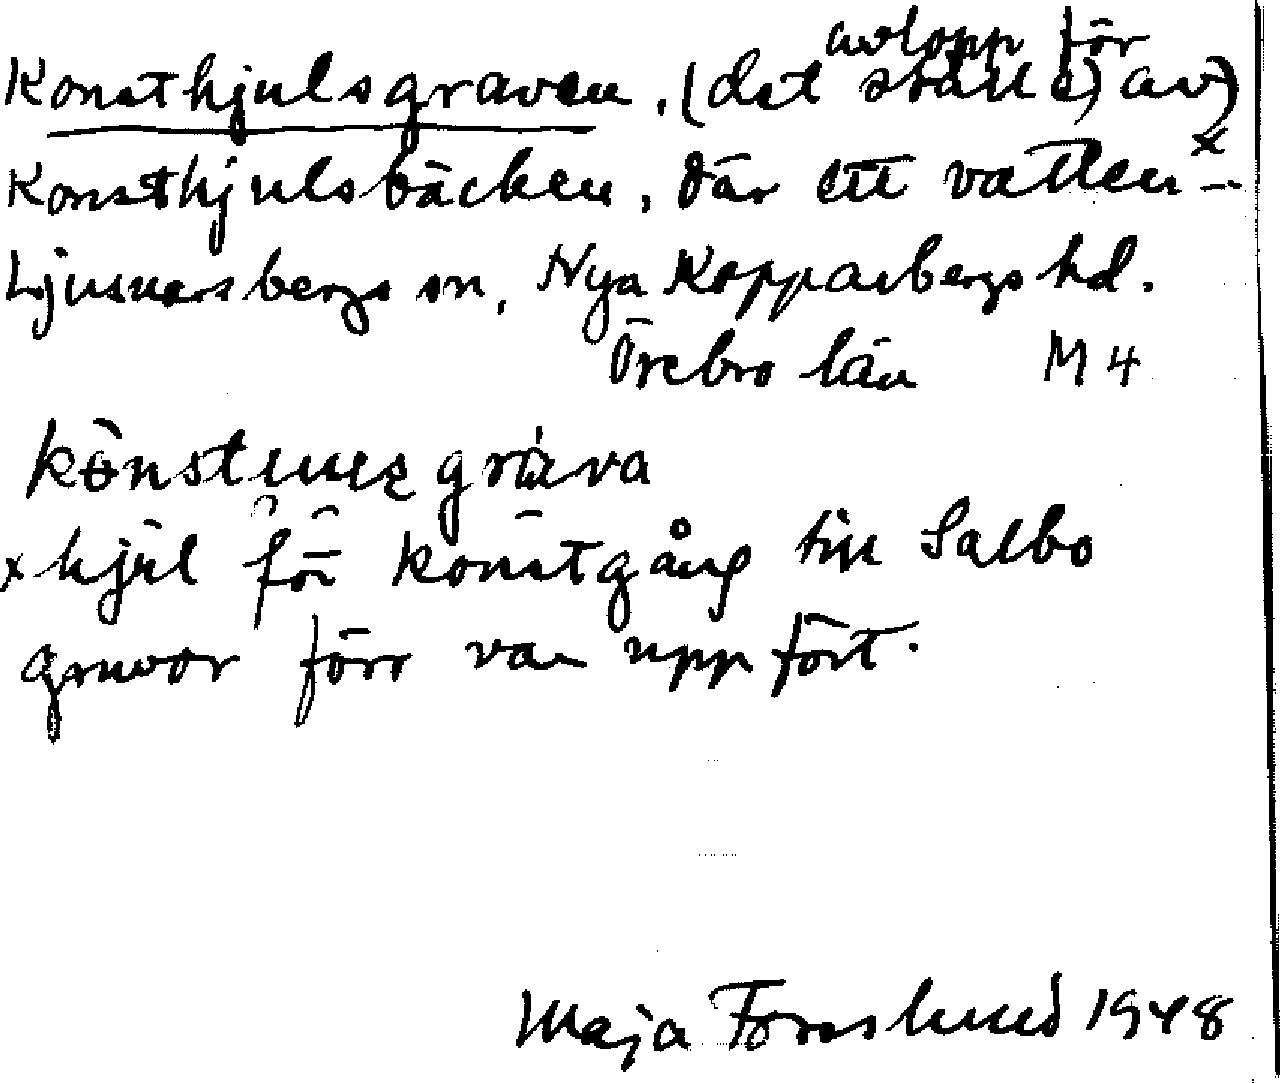 avlopp för
Konsthjulsgraven, (det ställe) av)
Konsthjulsbäcken, där ett vatten- x
Ljusnarsbergs sn, Nya Kopparbergs hd.
Örebro län M 4
gráva
x hjul för konstgång till Salbo
gruvor förr var uppfört.
Maja Forsslund 1948